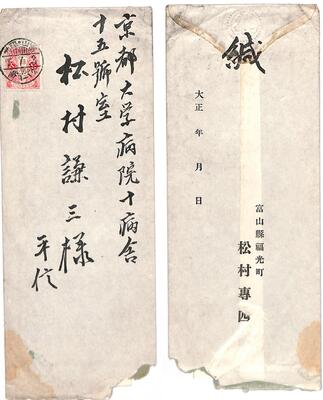 京都大学病院十病舎
十五號室
松村謙三様
平信
緘
大正 年 月 日
富山縣福光町
松村專四